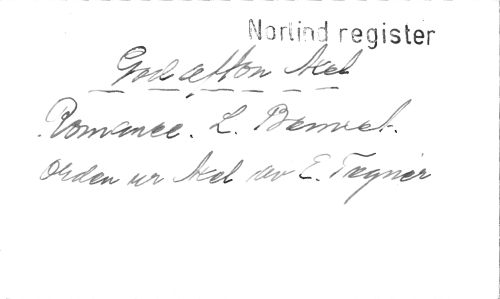 Norlind register
God afton Axel
Romance. L.
Orden ur Axel av E. Tegnér